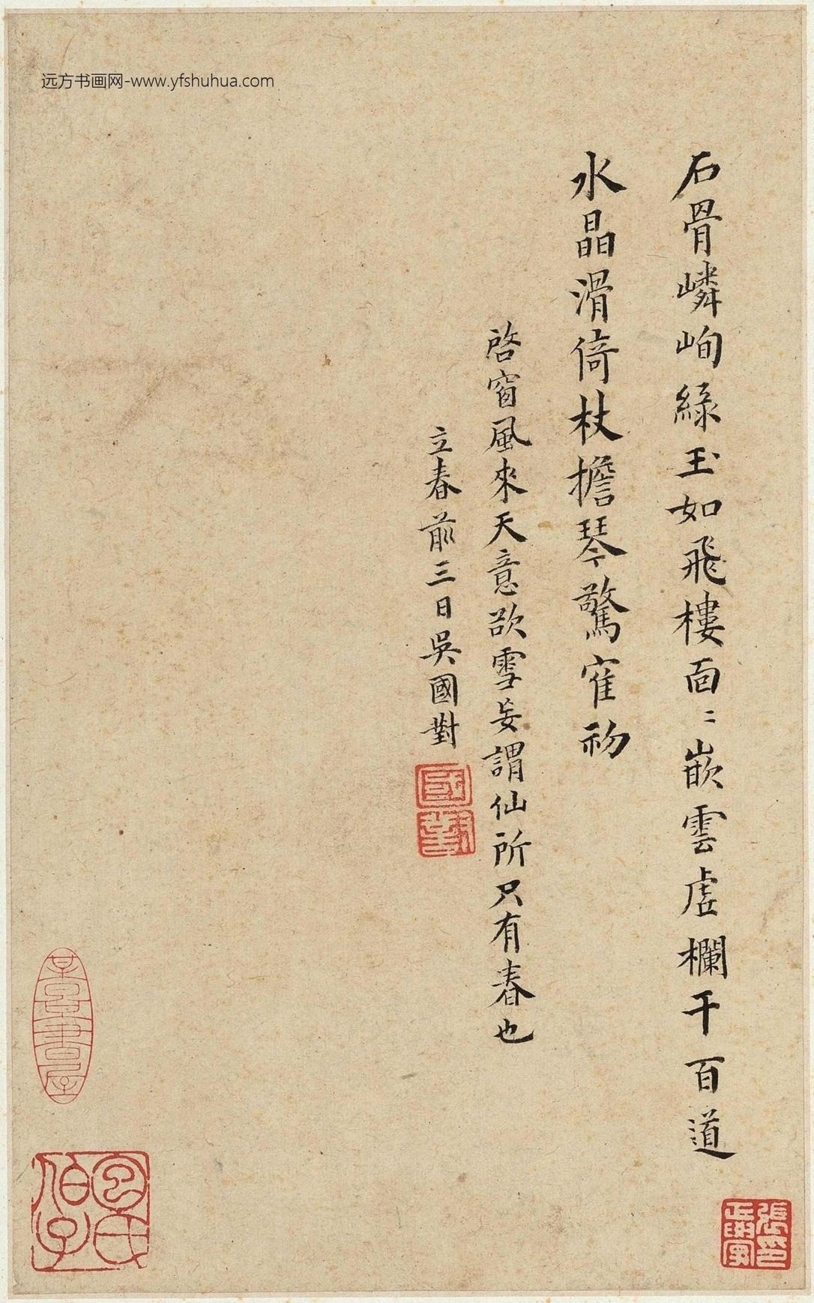 远方书画网-www.yfshuhua.com
石骨嶙峋綠玉如飛樓面〻嵌雲虛欄干百道
水晶滑倚杖擔琴驚寉初
啓窗風來天意欲雪妄謂仙所只有春也
立春前三日吳國對
國對